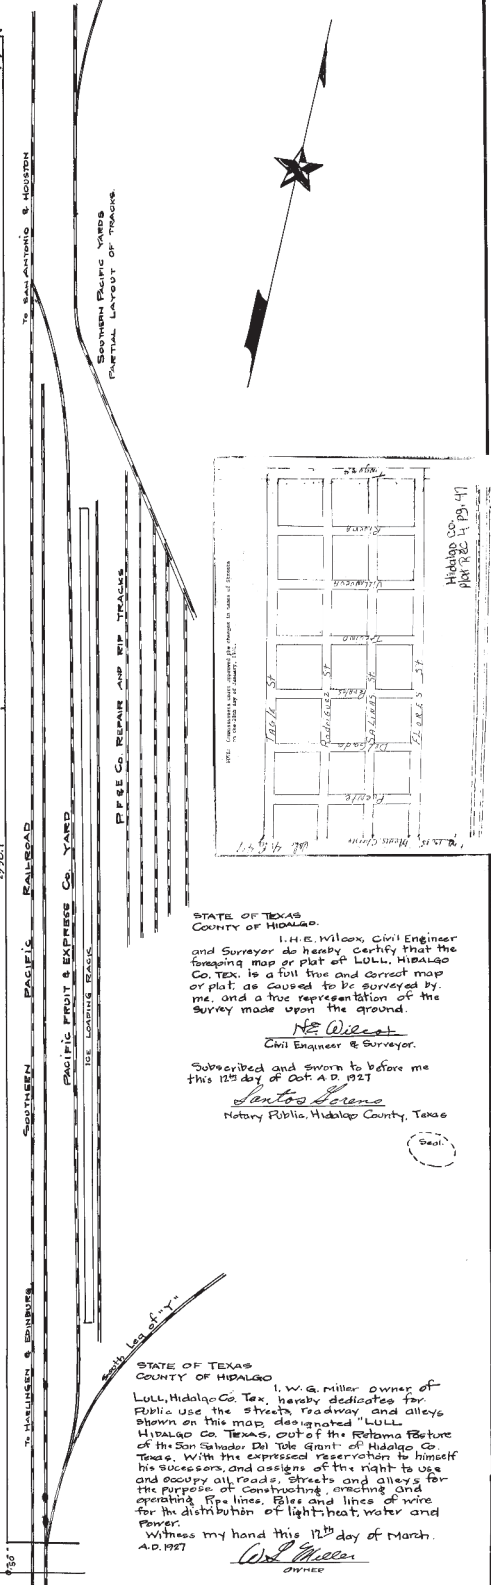 TO SAN ANTONIO & HOUSTON
SOUTHERN PACIFIC YARDS
PARTIAL LAYOUT OF TRACKS.
P.F.&E. CO. REPAIR AND RIP TRACKS
SOUTHERN PACIFIC RAILROAD
PACIFIC FRUIT & EXPRESS CO. YARD
ICE LOADING RACK
TO HARLINGEN & EDINBURG
South Leg of "Y"
Hidalgo Co.
Plat Rec 4 pg. 47
NOTE: Commissioners Court approved the changes in names of Streets
TAGLE St
Rodriguez St
SALINAS St
FLORES St
Rivera
Villanueva
Trevino
Rosales
Delgado
Puente
STATE OF TEXAS
COUNTY OF HIDALGO.
I. H.E. Wilcox, Civil Engineer
and Surveyor do hereby certify that the
foregoing map or plat of LULL, HIDALGO
Co. TEX. is a full true and correct map
or plat, as caused to be surveyed by
me, and a true representation of the
survey made upon the ground.
H.E. Wilcox
Civil Engineer & Surveyor.
Subscribed and sworn to before me
this 12th day of Oct. A.D. 1927
Santos Lozano
Notary Public, Hidalgo County, Texas
Seal.
STATE OF TEXAS
COUNTY OF HIDALGO
I, W. G. Miller owner of
LULL, Hidalgo Co. Tex. hereby dedicates for
Public use the streets, roadway and alleys
shown on this map, designated "LULL
HIDALGO CO. TEXAS, out of the Retama Pasture
of the San Salvador Del Tule Grant of Hidalgo Co.
Texas. With the expressed reservation to himself
his sucessors, and assigns of the right to use
and occupy all roads, streets and alleys for
the purpose of constructing, erecting and
operating Pipe lines, Poles and lines of wire
for the distribution of light, heat, water and
Power.
Witness my hand this 12th day of March.
A.D. 1927
W G Miller
OWNER